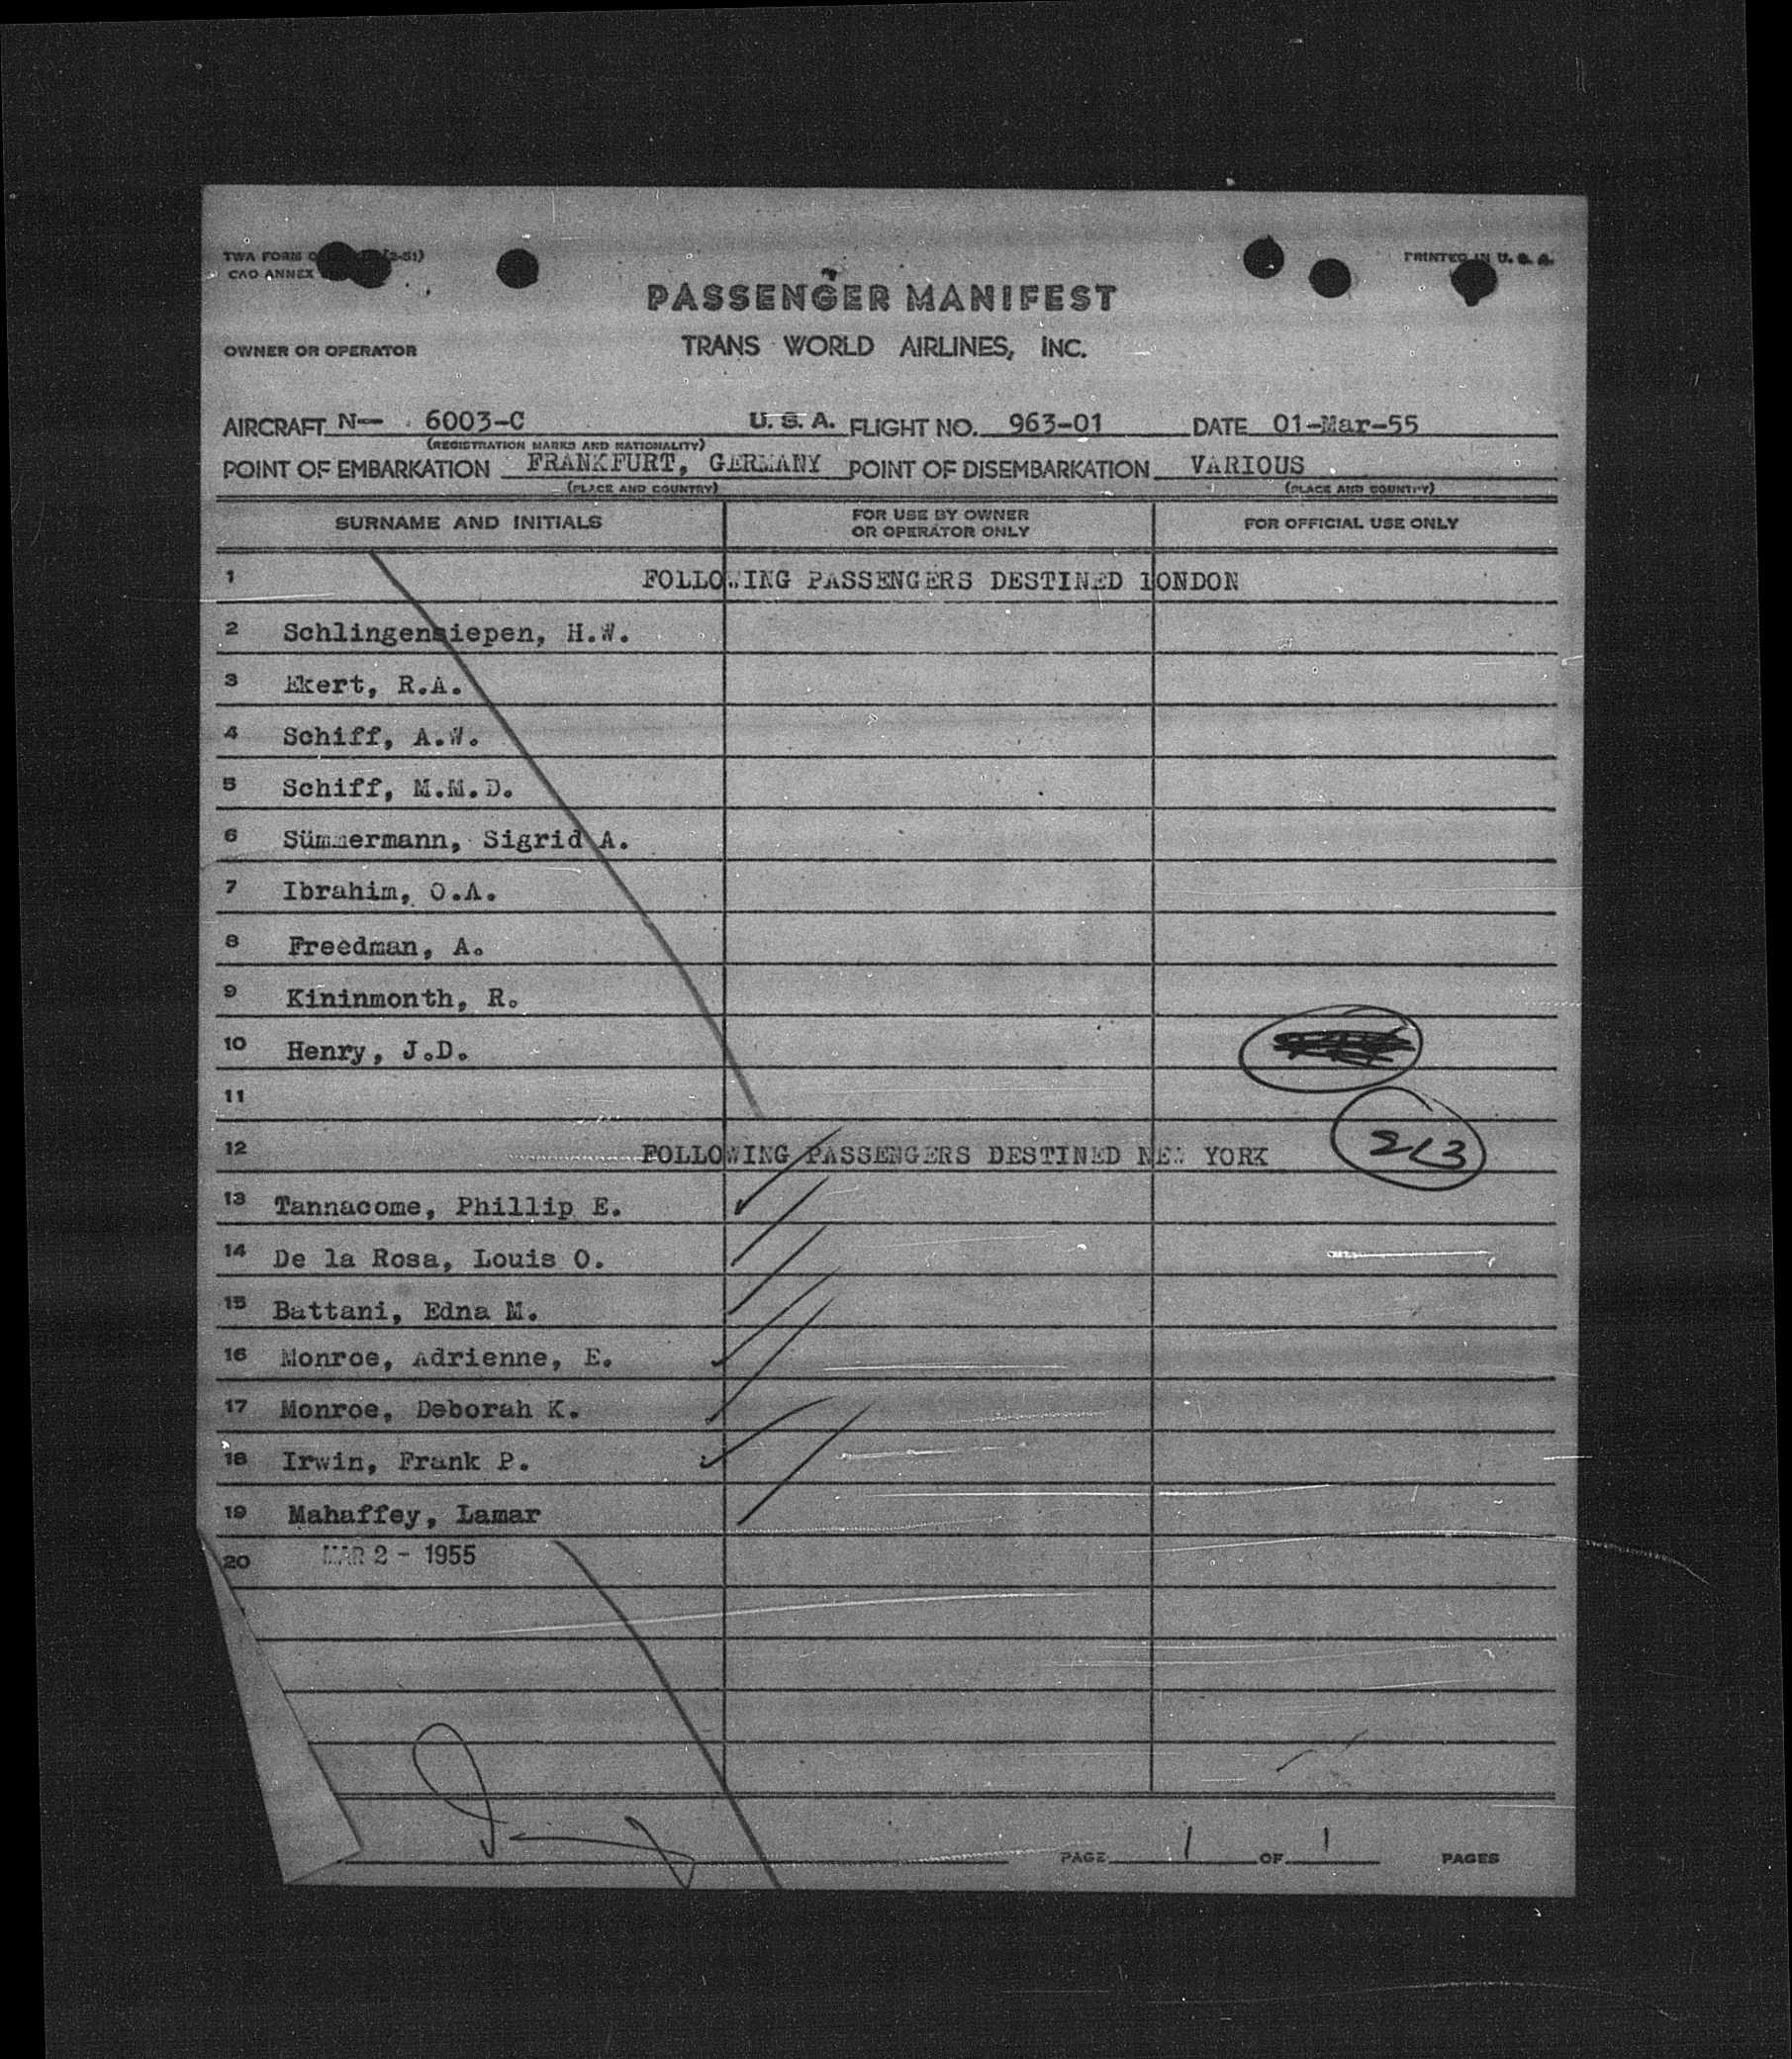 TWA FORM (2-51)
CAO ANNEX
PRINTED IN U. S. A.
PASSENGER MANIFEST
OWNER OR OPERATOR TRANS WORLD AIRLINES, INC.
AIRCRAFT N— 6003-C U. S. A. FLIGHT NO. 963-01 DATE 01-Mar-55
(REGISTRATION MARKS AND NATIONALITY)
POINT OF EMBARKATION FRANKFURT, GERMANY POINT OF DISEMBARKATION VARIOUS
(PLACE AND COUNTRY) (PLACE AND COUNTRY)
SURNAME AND INITIALS FOR USE BY OWNER OR OPERATOR ONLY FOR OFFICIAL USE ONLY
1 FOLLOWING PASSENGERS DESTINED LONDON
2 Schlingensiepen, H.W.
3 Ekert, R.A.
4 Schiff, A.W.
5 Schiff, M.M.D.
6 Sümmermann, Sigrid A.
7 Ibrahim, O.A.
8 Freedman, A.
9 Kininmonth, R.
10 Henry, J.D.
11
12 FOLLOWING PASSENGERS DESTINED NEW YORK 213
13 Tannacome, Phillip E.
14 De la Rosa, Louis O.
15 Battani, Edna M.
16 Monroe, Adrienne, E.
17 Monroe, Deborah K.
18 Irwin, Frank P.
19 Mahaffey, Lamar
20 MAR 2 - 1955
PAGE 1 OF 1 PAGES